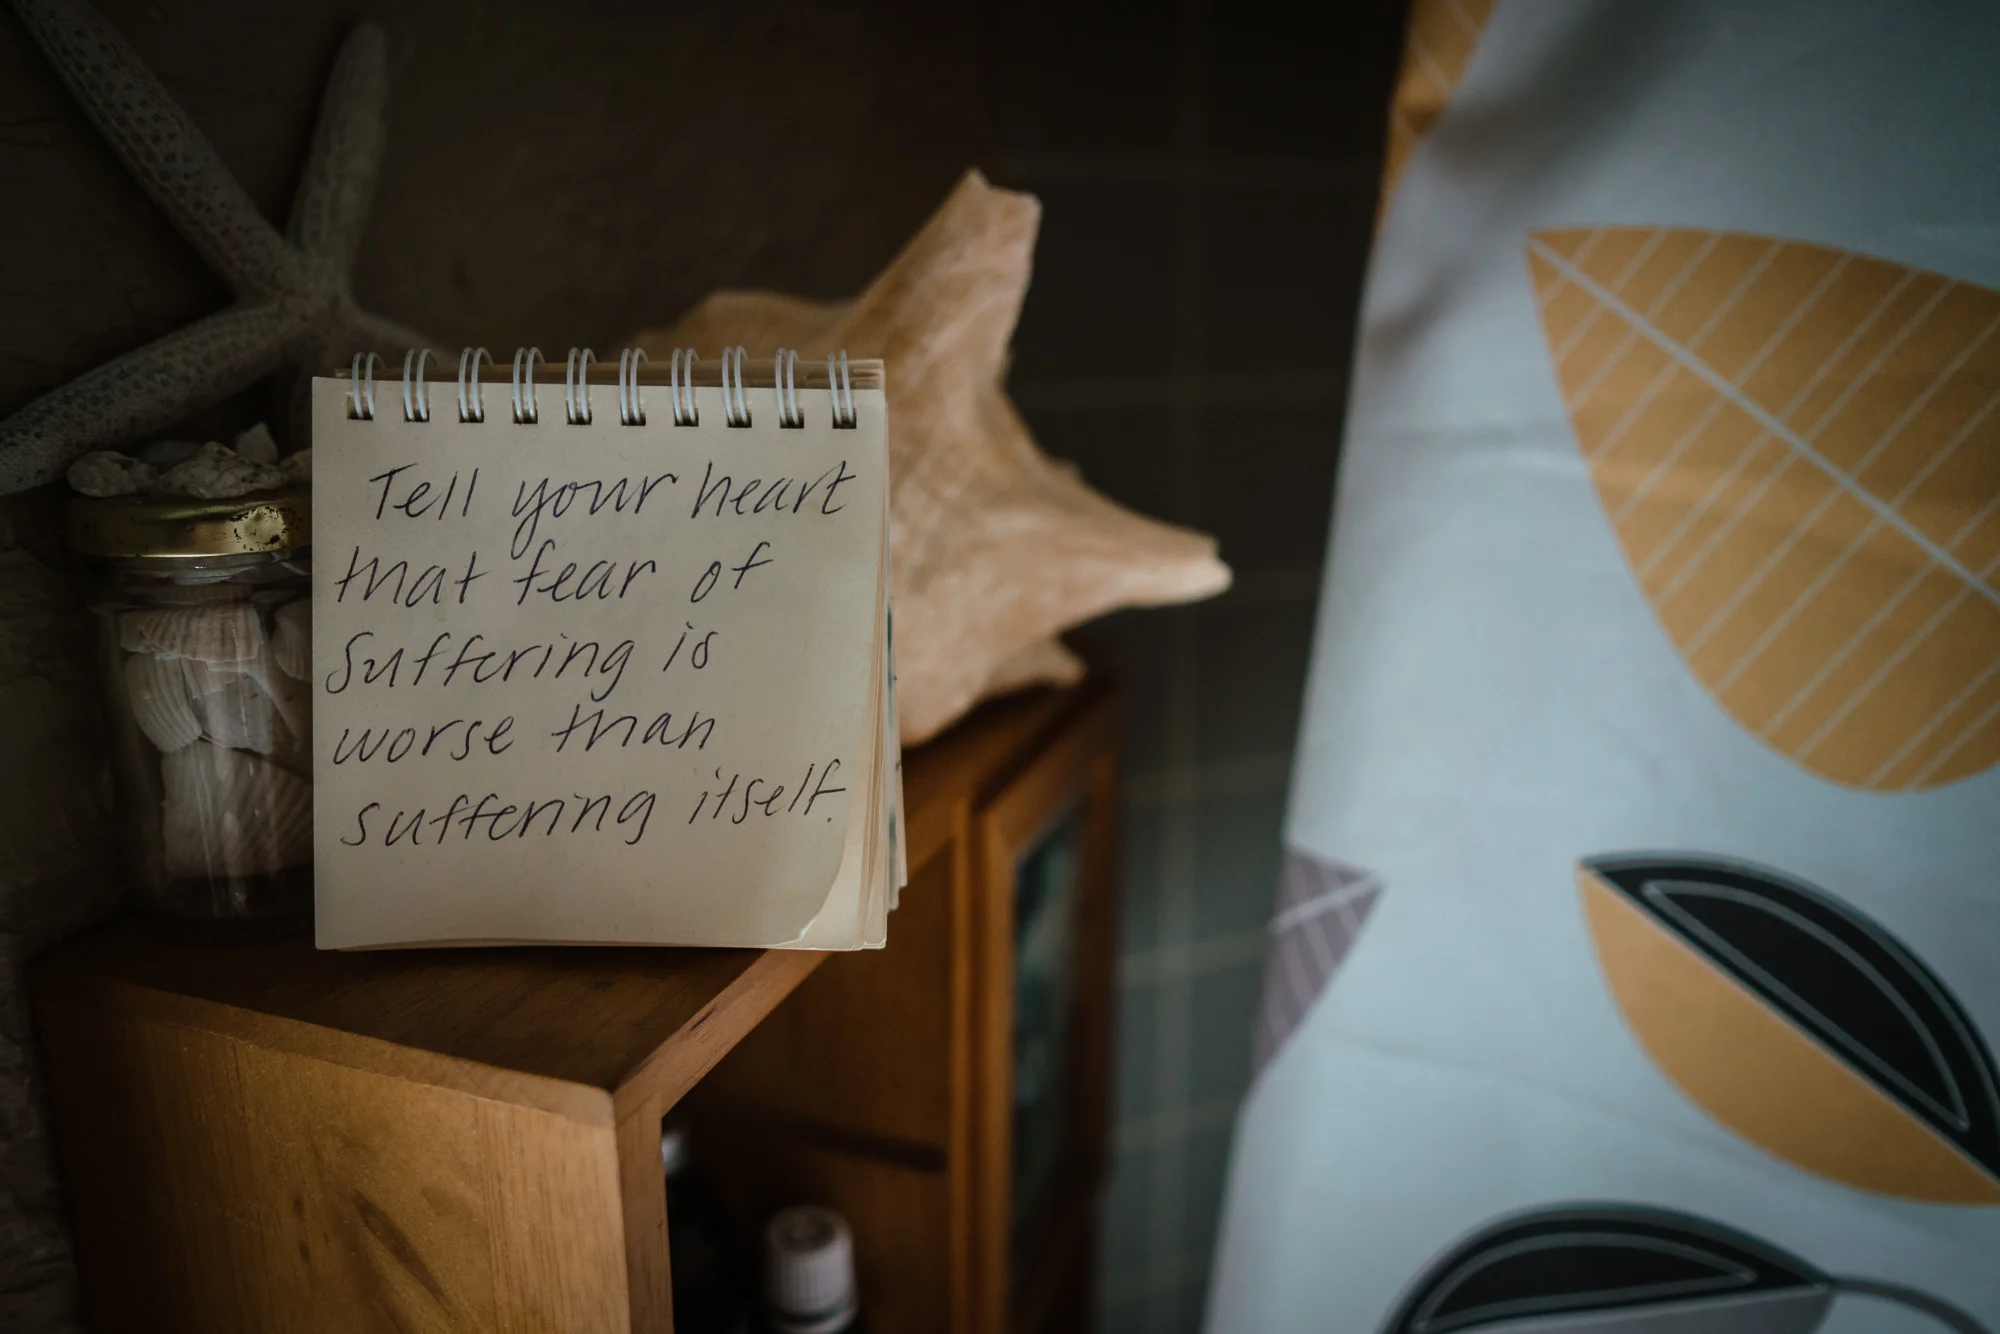 Tell your heart
that fear of
suffering is
worse than
suffering itself.